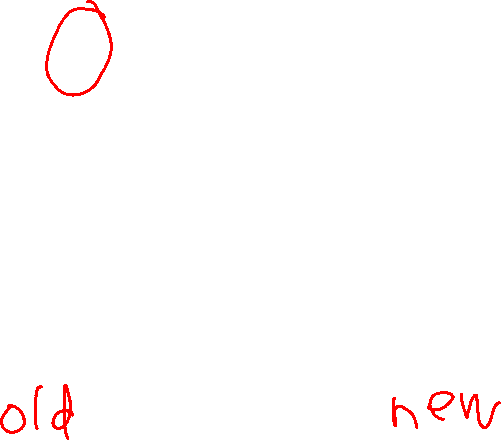 old new